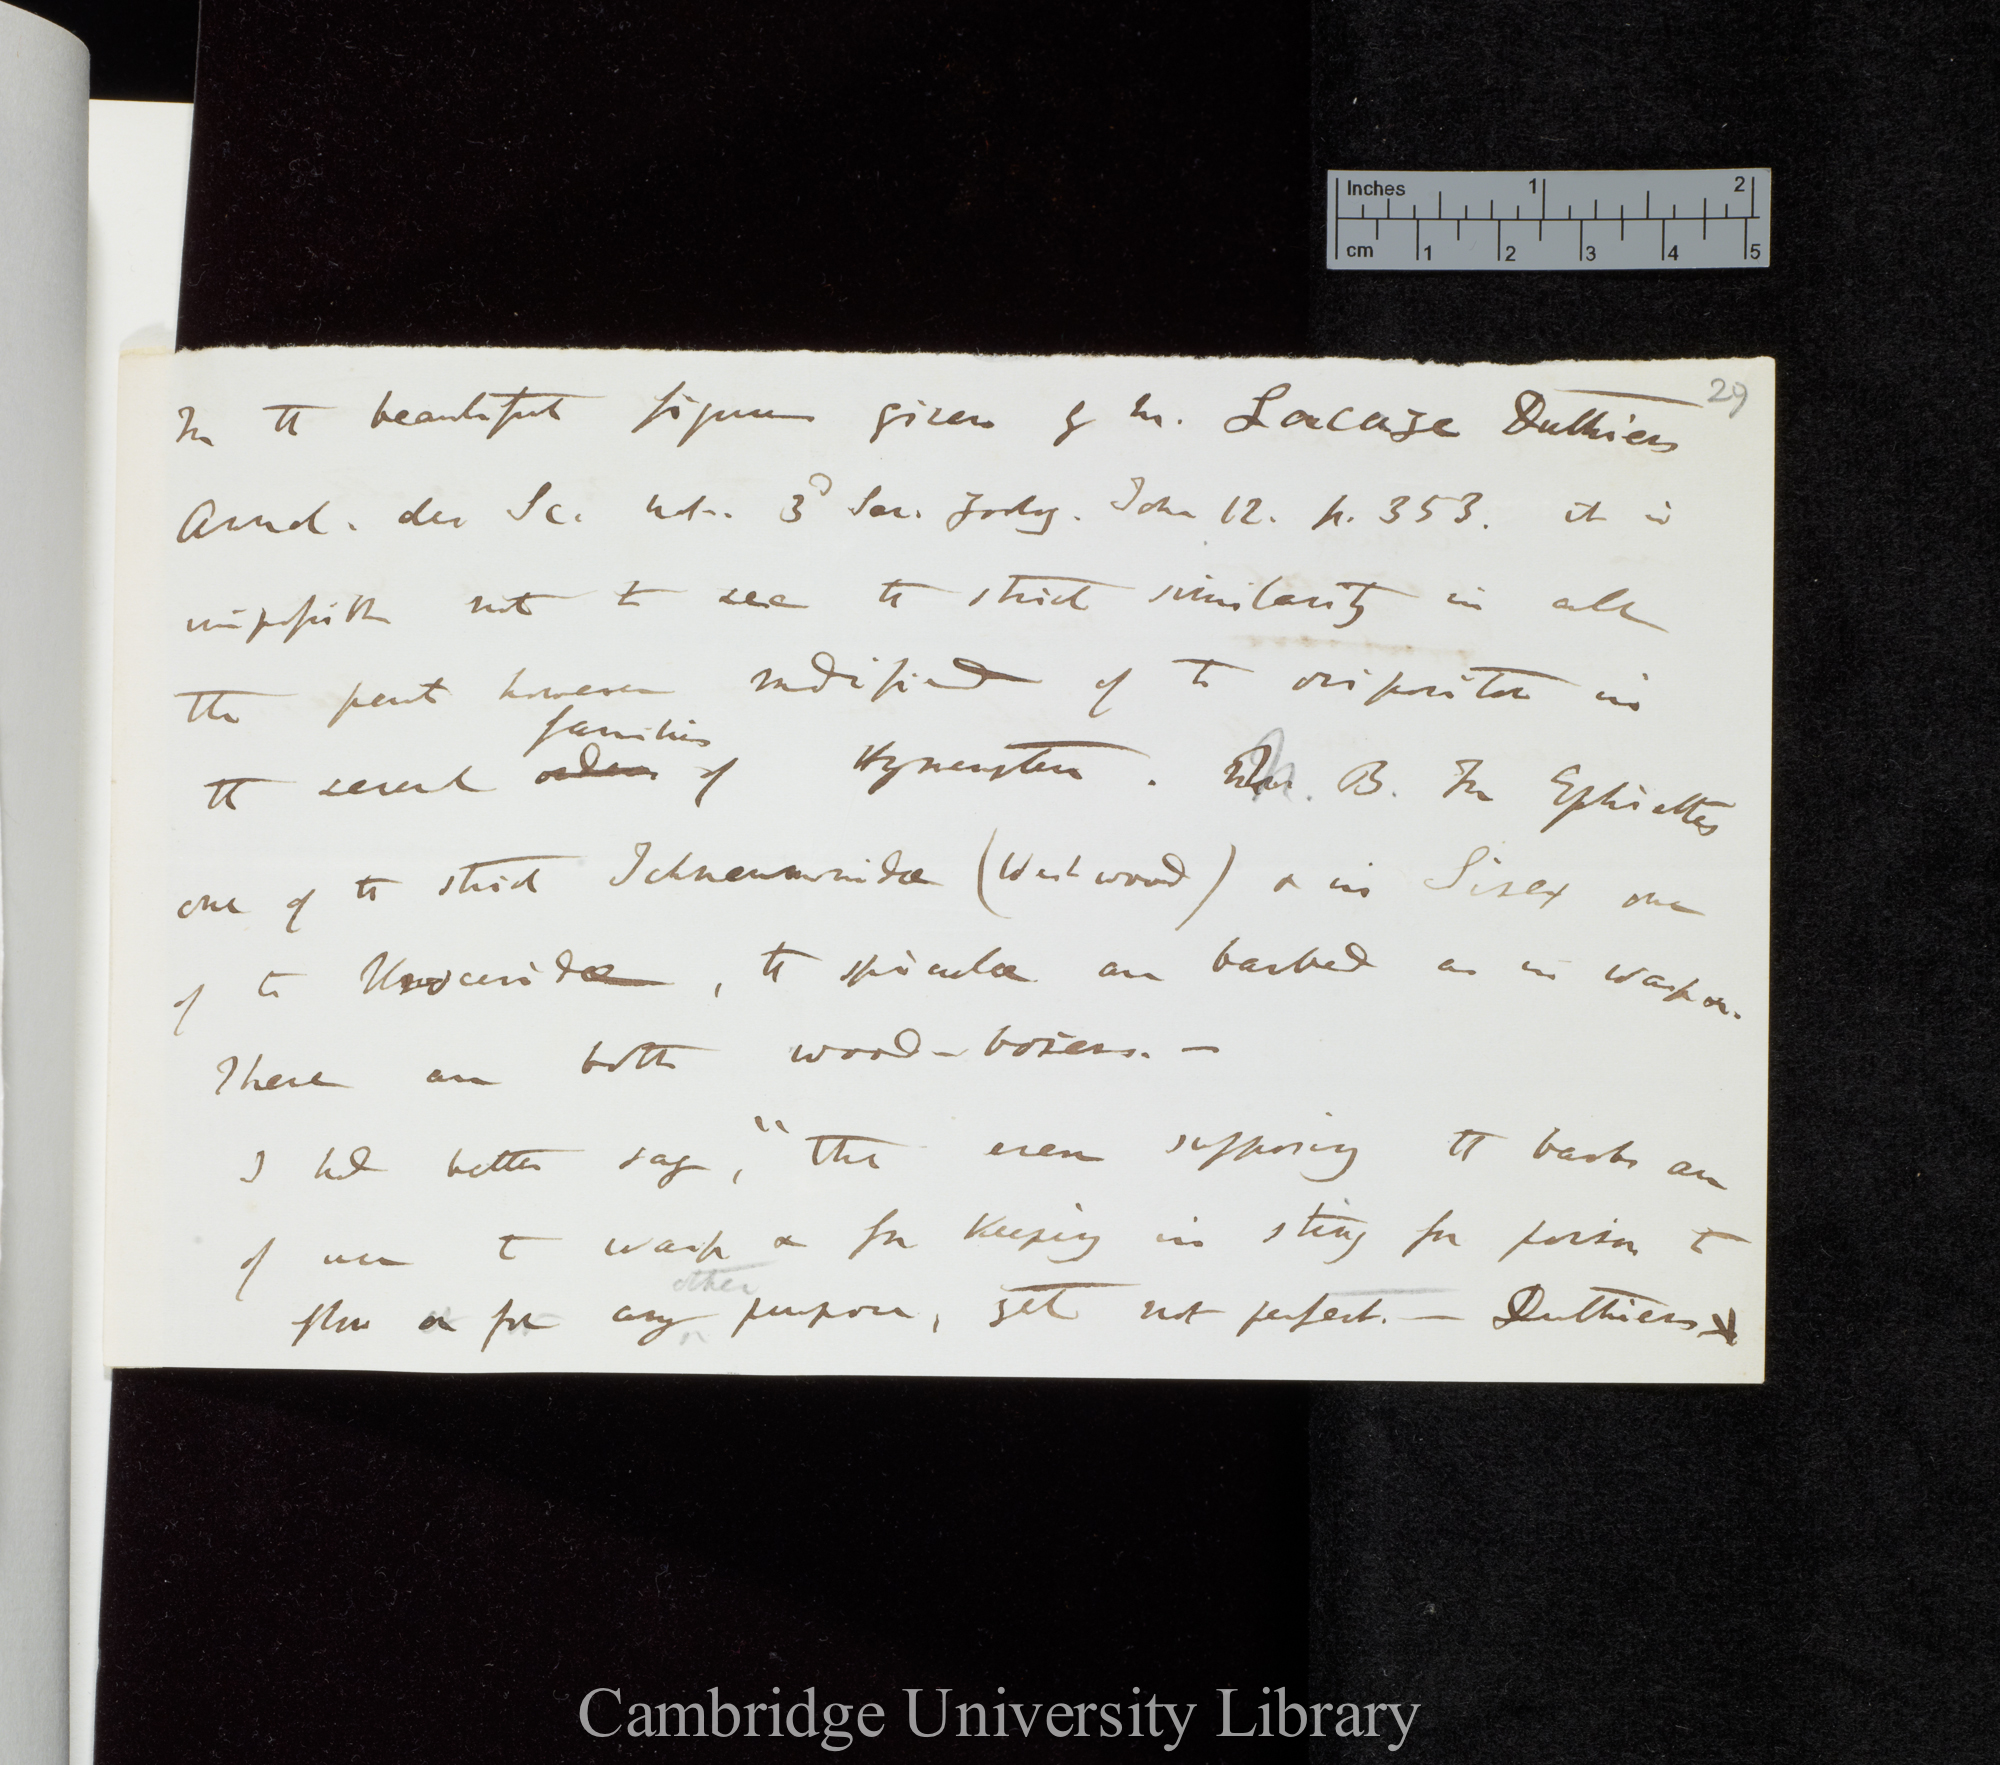 Inches 1 2
cm 1 2 3 4 5
29
In the beautiful figures given by M. Lacaze Duthiers
Annal. des Sc. Nat. 3d Ser. Zoolog. Tom 12. p. 353. it is
impossible not to see the strict similarity in all
the part however modified of the ovipositor in
families
the several orders of Hymenoptera. N. B. In Ephialtes
one of the strict Ichneumonidæ (Westwood) & in Sirex one
of the Uroceridæ, the spiculæ are barbed as in wasp &c.
These are both wood-borers. —
I had better say, "the even supposing the barbs are
of use to wasp & for keeping in sting for poison to
other
flow or for any purpose, yet not perfect. — Duthiers
Cambridge University Library